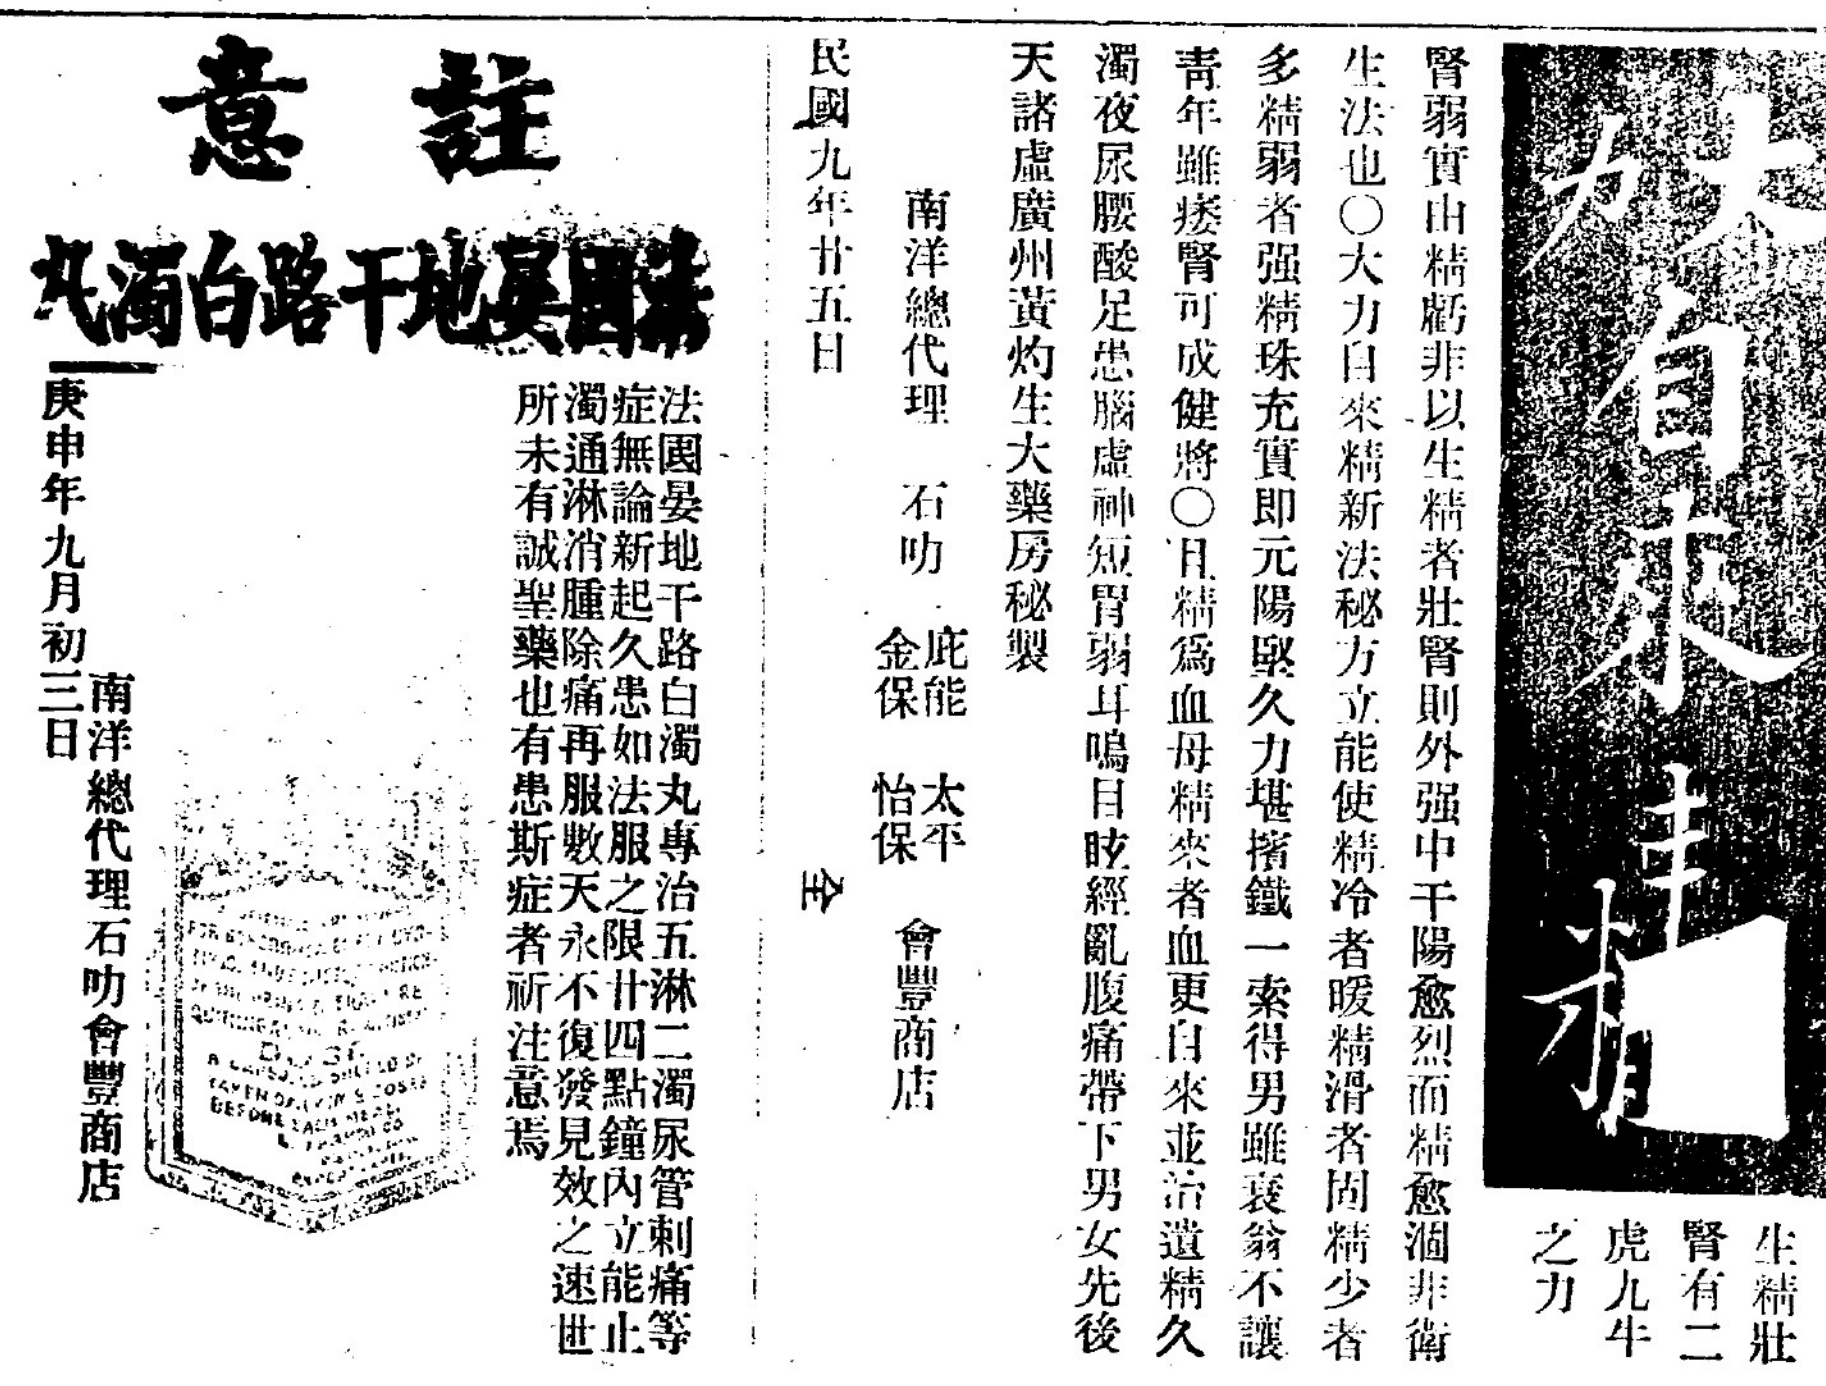 大力
自來
精
生精壯
腎有二
虎九牛
之力
腎弱實由精虧非以生精者壯腎則外强中干陽愈烈而精愈涸非衛
生法也〇大力自來精新法秘方立能使精冷者暖精滑者固精少者
多精弱者强精珠充實即元陽堅久力堪擯鐵一索得男雖衰翁不讓
靑年雖痿腎可成健將〇且精爲血母精來者血更自來並治遺精久
濁夜尿腰酸足患腦虛神短胃弱耳鳴目眩經亂腹痛帶下男女先後
天諸虛廣州黃灼生大藥房秘製
南洋總代理 石叻 庇能 太平 金保 怡保 會豐商店
民國九年廿五日 仝
註意
法國晏地干路白濁丸
法國晏地干路白濁丸專治五淋二濁尿管刺痛等
症無論新起久患如法服之限廿四點鐘內立能止
濁通淋消腫除痛再服數天永不復發見效之速世
所未有誠聖藥也有患斯症者祈注意焉
南洋總代理石叻會豐商店
庚申年九月初三日
A CAPSULE SHOULD BE
BEFORE EACH MEAL